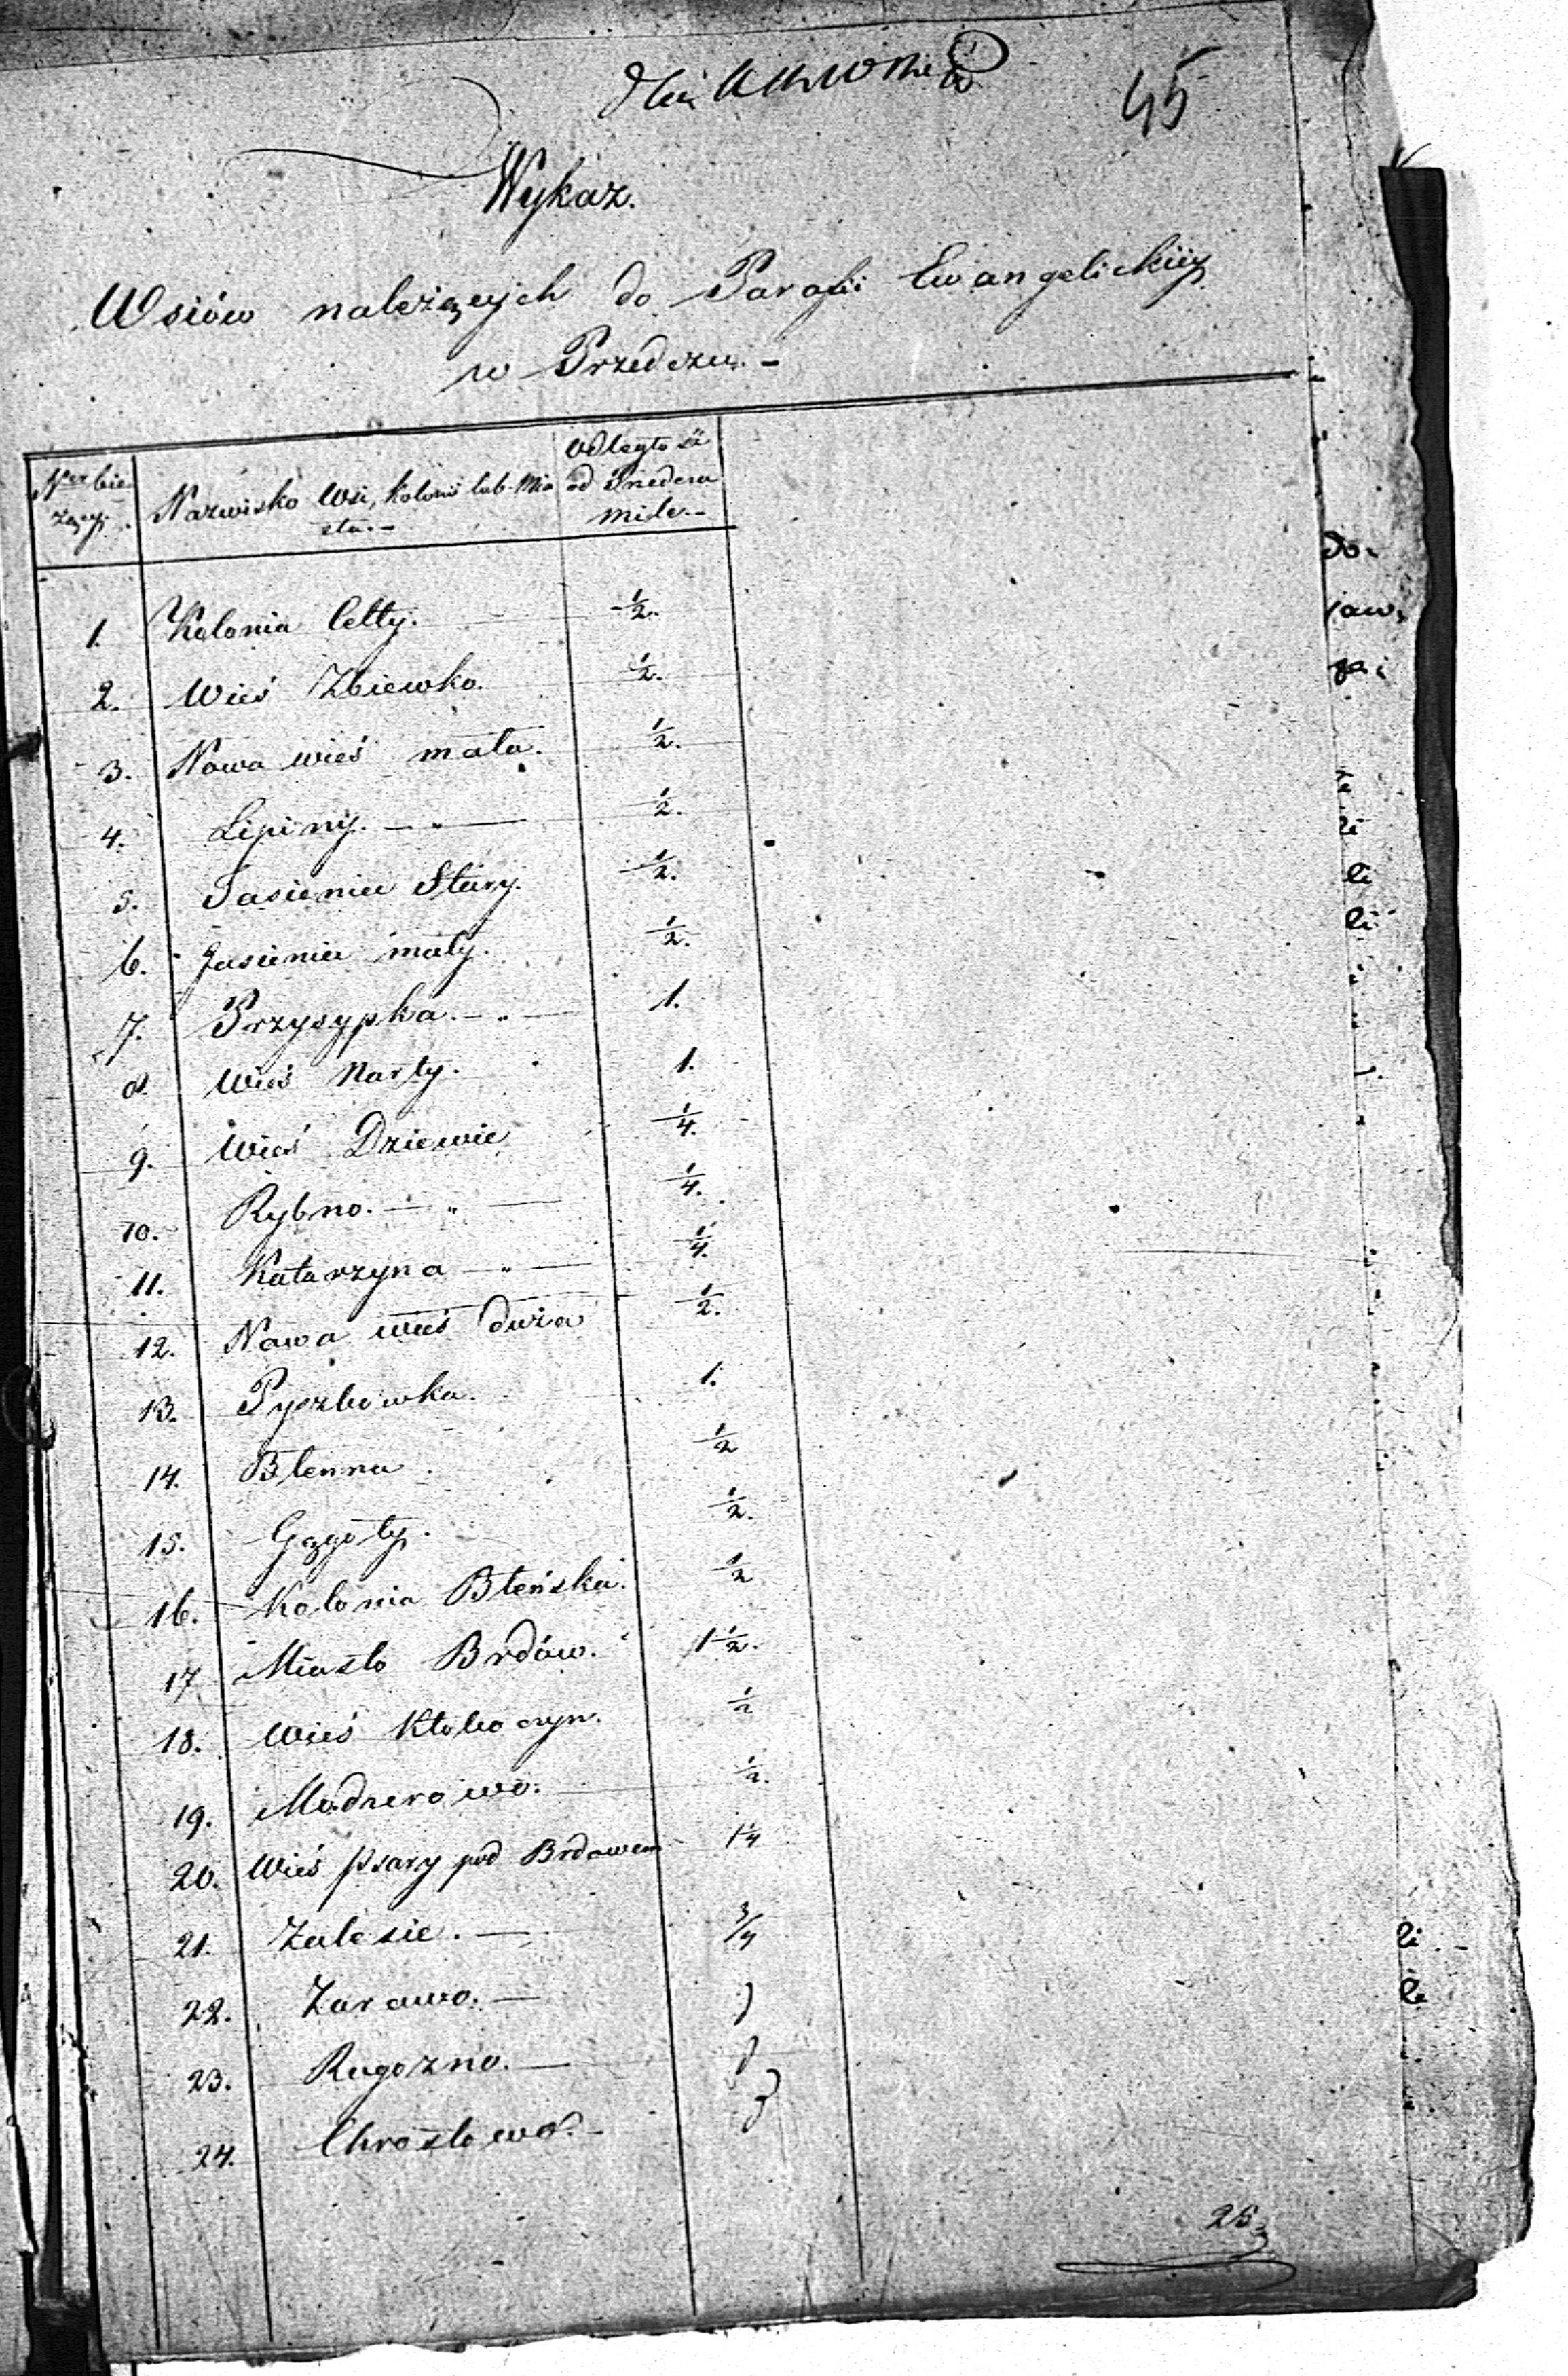 45
Wykaz.
Wsiów należących do Parafii Ewangelickiiy
w Przedczu. -
Ner bie- Nazwisko Wsi, Kolonii lub Mia Odległość
żący. sta. - od Przedcza
mile. -
1. Kolonia Celty. ½.
2. Wieś Zbiewko. ½.
3. Nowa wieś mała. ½.
4. Lipiny. — „ — ½.
5. Jasieniec Stary. ½.
6. Jasieniec mały. ½.
7. Przysypka. — „ — 1.
8. Wieś Narty. 1.
9. Wieś Dziewie ¼.
10. Rybno. — „ — ¼.
11. Katarzyna — „ — ¼.
12. Nowa wieś duża ½.
13. Pyszkówka. 1.
14. Błenna ½
15. Gągoty. ½.
16. Kolonia Błeńska. ½
17 Miasto Brdów. 1½.
18. Wieś Kłoboczyn. ½
19. Modzerowo. ½.
20. Wieś Psary pod Brdowem 1¼
21. Zalesie. — ¾
22. Żarowo. —
23. Rugozno. —
24. Chrostowo. -
do-
jaw,
li
li
li
25